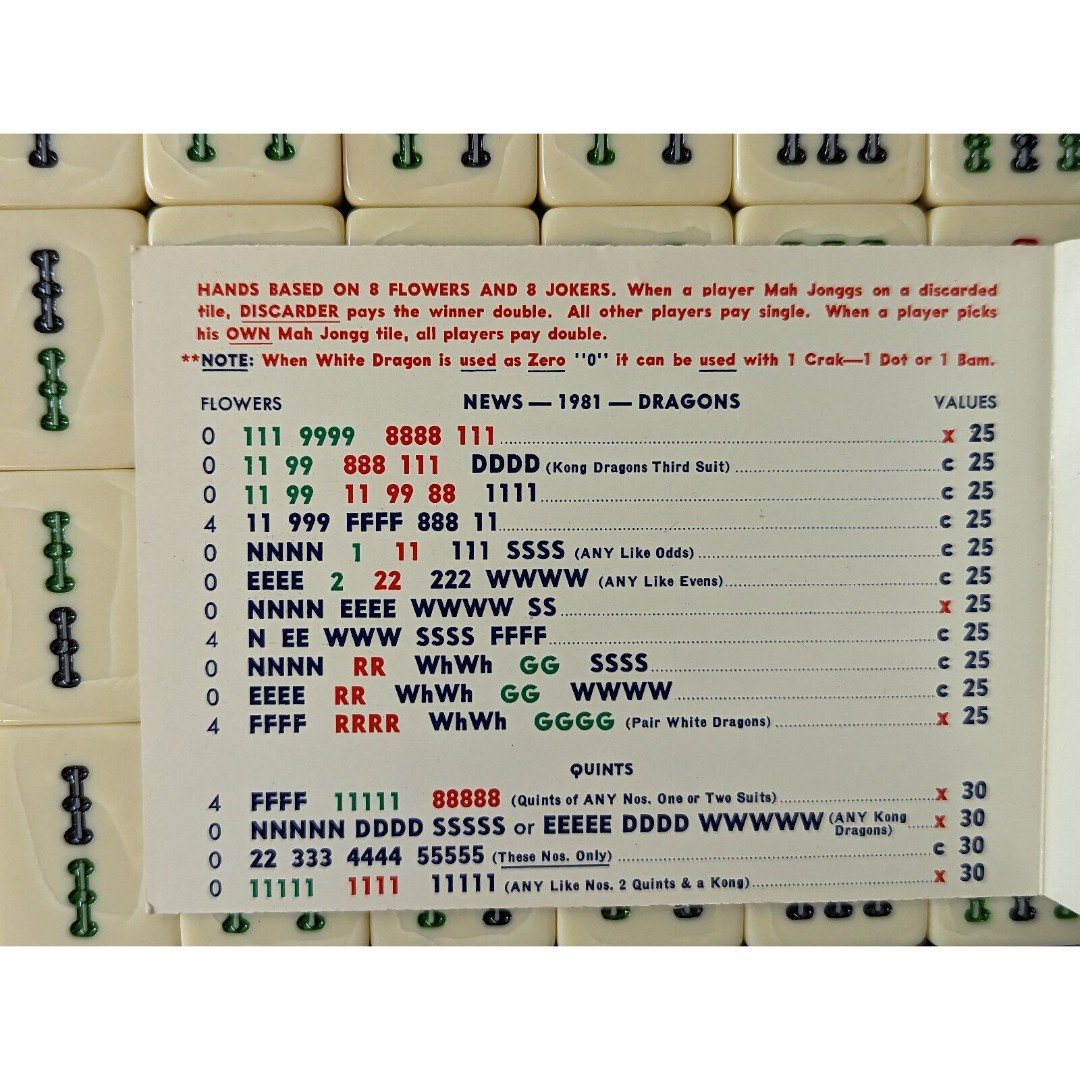 HANDS BASED ON 8 FLOWERS AND 8 JOKERS. When a player Mah Jonggs on a discarded
tile, DISCARDER pays the winner double. All other players pay single. When a player picks
his OWN Mah Jongg tile, all players pay double.
**NOTE: When White Dragon is used as Zero "0" it can be used with 1 Crak—1 Dot or 1 Bam.
FLOWERS NEWS — 1981 — DRAGONS VALUES
0 111 9999 8888 111 x 25
0 11 99 888 111 DDDD (Kong Dragons Third Suit) c 25
0 11 99 11 99 88 1111 c 25
4 11 999 FFFF 888 11 c 25
0 NNNN 1 11 111 SSSS (ANY Like Odds) c 25
0 EEEE 2 22 222 WWWW (ANY Like Evens) c 25
0 NNNN EEEE WWWW SS x 25
4 N EE WWW SSSS FFFF c 25
0 NNNN RR WhWh GG SSSS c 25
0 EEEE RR WhWh GG WWWW c 25
4 FFFF RRRR WhWh GGGG (Pair White Dragons) x 25
QUINTS
4 FFFF 11111 88888 (Quints of ANY Nos. One or Two Suits) x 30
0 NNNNN DDDD SSSSS or EEEEE DDDD WWWWW (ANY Kong Dragons) x 30
0 22 333 4444 55555 (These Nos. Only) c 30
0 11111 1111 11111 (ANY Like Nos. 2 Quints & a Kong) x 30